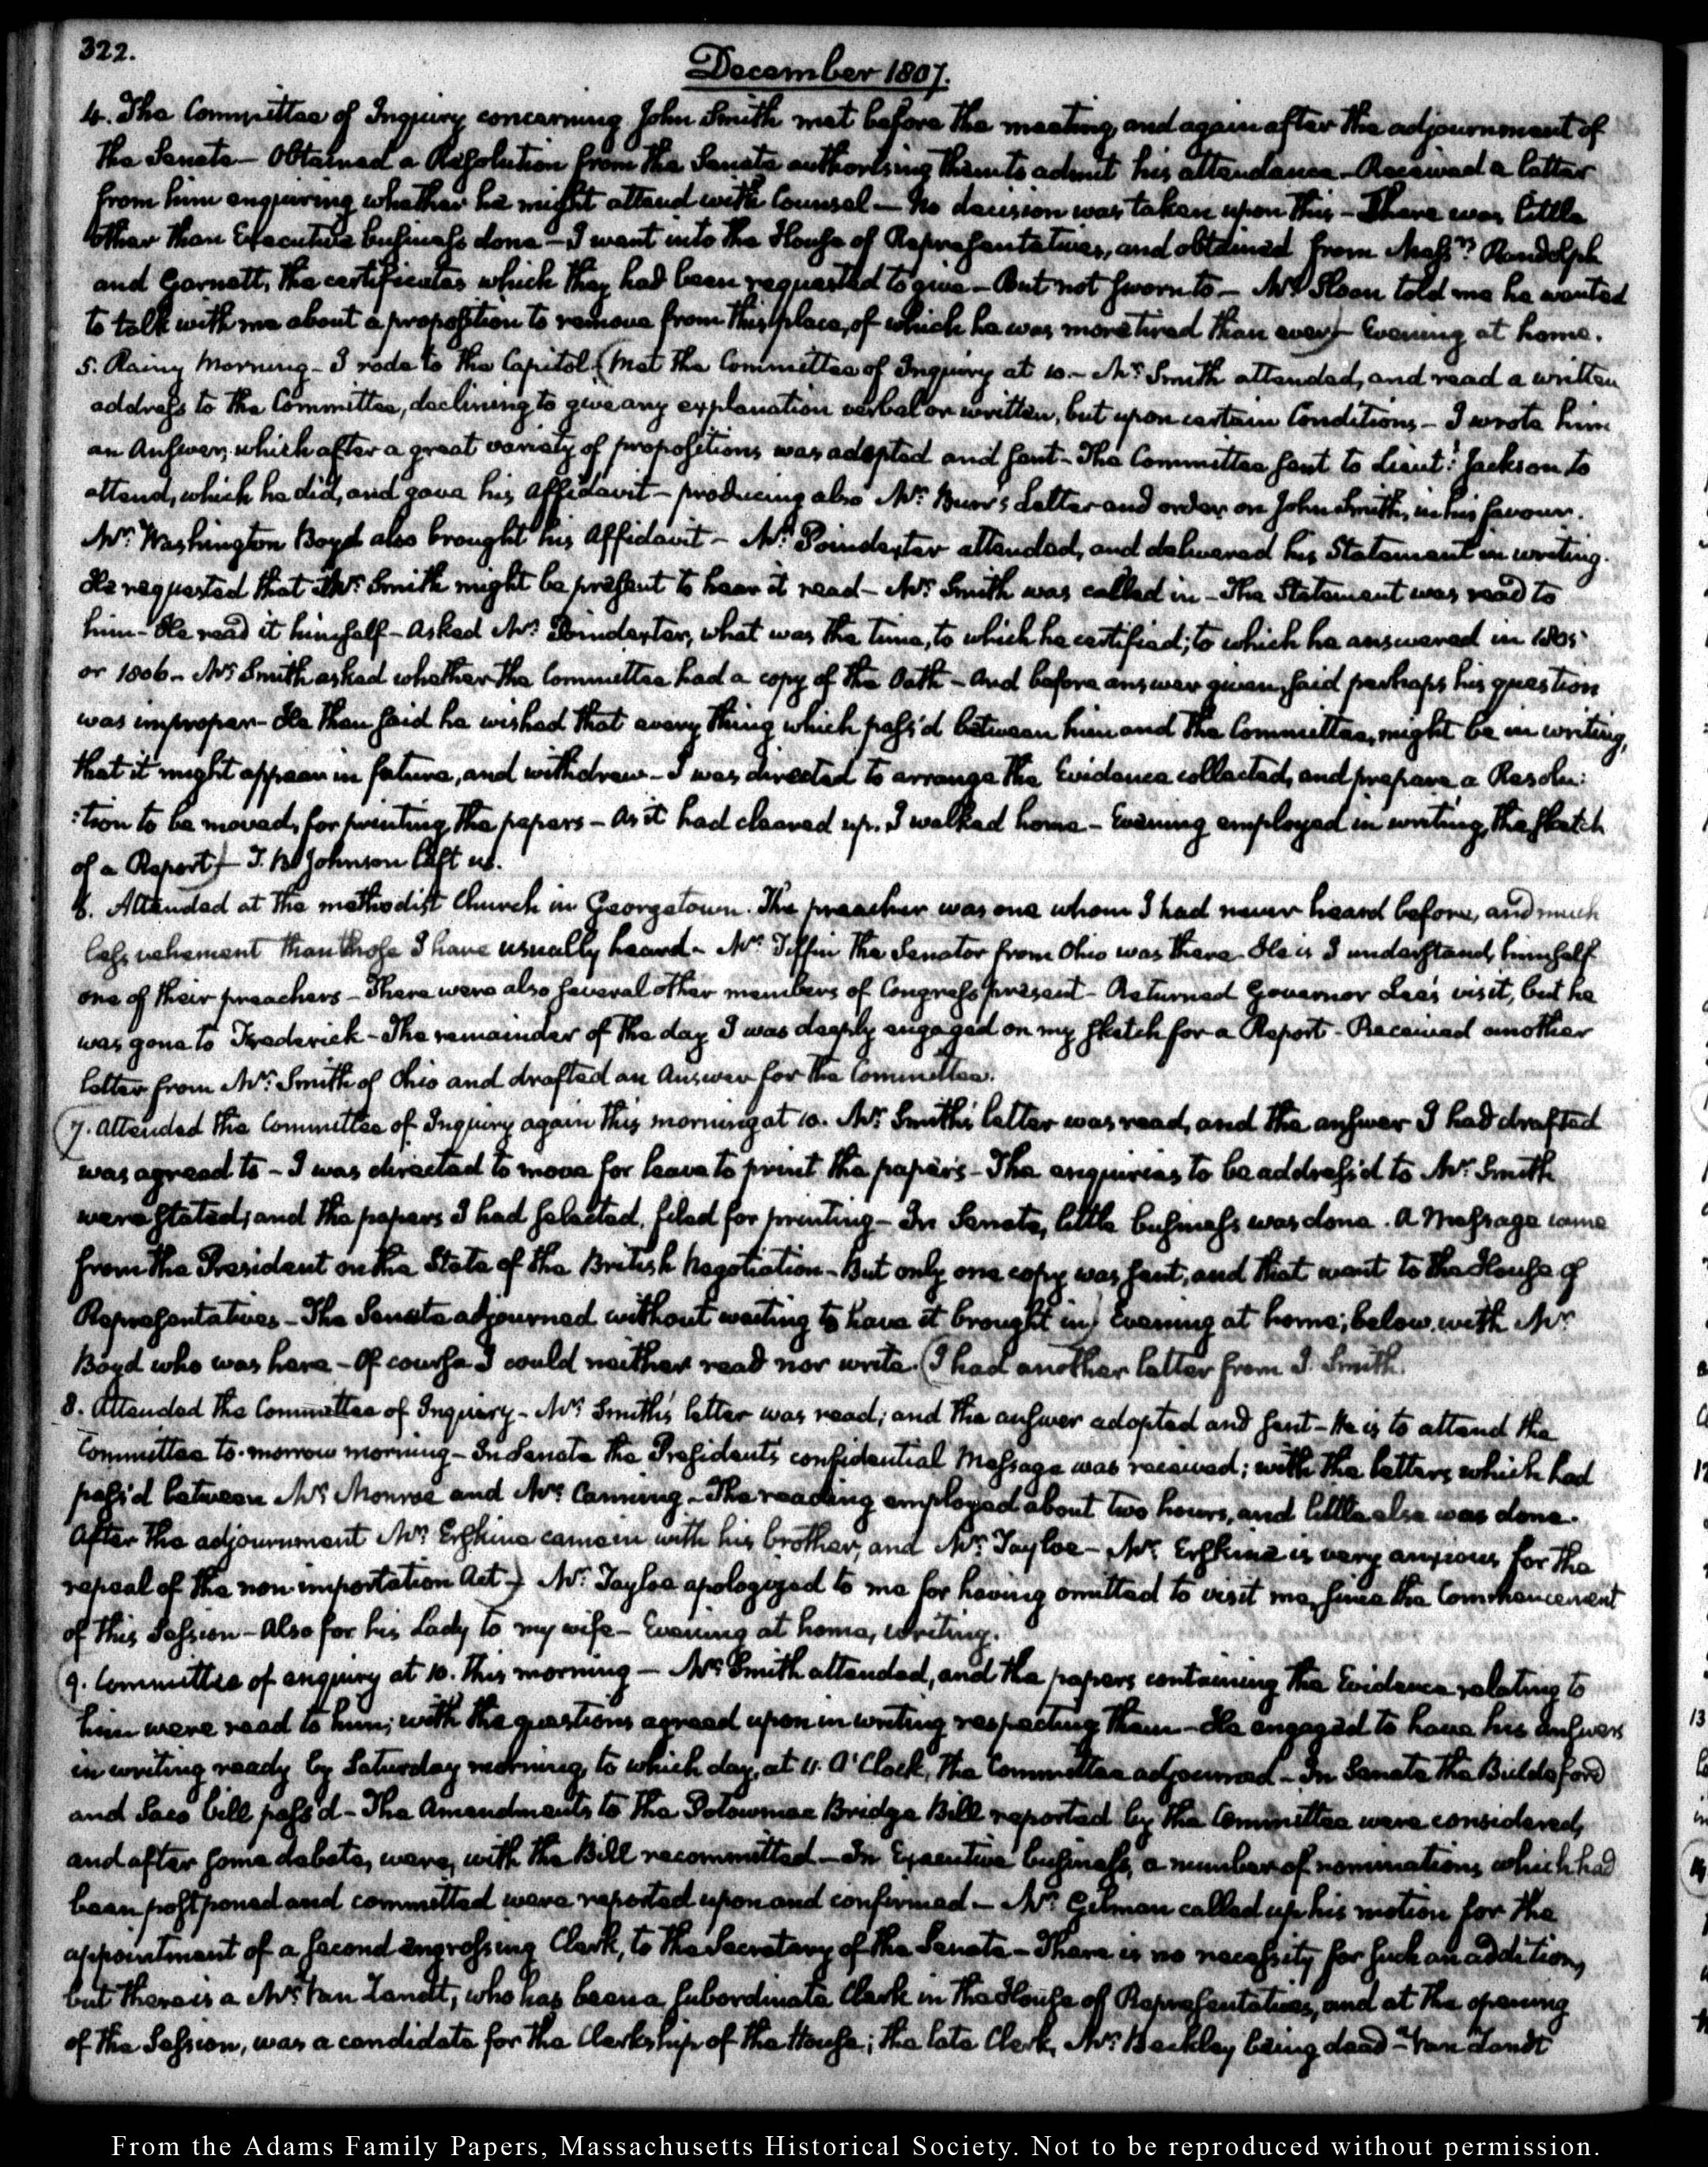 322.
December 1807.
4. The Committee of Inquiry concerning John Smith met before the meeting, and again after the adjournment of
the Senate — Obtained a Resolution from the Senate authorising them to admit his attendance — Received a letter
from him enquiring whether he might attend with Counsel — No decision was taken upon this — There was little
other than Executive business done — I went into the House of Representatives, and obtained from Messrs. Randolph
and Garnett, the certificates which they had been requested to give — But not sworn to — Mr. Sloan told me he wanted
to talk with me about a proposition to remove from this place, of which he was more tired than ever) — Evening at home.
5. Rainy Morning — I rode to the Capitol (Met the Committee of Inquiry at 10 — Mr. Smith attended, and read a written
address to the Committee, declining to give any explanation verbal or written, but upon certain Conditions — I wrote him
an Answer, which after a great variety of propositions was adopted and sent — The Committee sent to Lieut: Jackson to
attend, which he did, and gave his Affidavit — producing also Mr. Burr's Letter and order on John Smith, in his favour.
Mr. Washington Boyd also brought his Affidavit — Mr. Poindexter attended, and delivered his Statement in writing.
He requested that Mr. Smith might be present to hear it read — Mr. Smith was called in — The Statement was read to
him — He read it himself — Asked Mr. Poindexter, what was the time, to which he certified; to which he answered in 1805
or 1806 — Mr. Smith asked whether the Committee had a copy of the Oath — And before answer given, said perhaps his question
was improper — He then said he wished that every thing which pass'd between him and the Committee, might be in writing,
that it might appear in future, and withdrew — I was directed to arrange the Evidence collected, and prepare a Resolu:
:tion to be moved, for printing the papers — As it had cleared up, I walked home — Evening employed in writing, the sketch
of a Report) — T. B. Johnson left us.
6. Attended at the methodist Church in Georgetown. The preacher was one whom I had never heard before, and much
less vehement than those I have usually heard — Mr. Tiffin the Senator from Ohio was there. He is I understand, himself
one of their preachers — There were also several other members of Congress present — Returned Governor Lee's visit, but he
was gone to Frederick — The remainder of the day I was deeply engaged on my sketch for a Report — Received another
letter from Mr. Smith of Ohio and drafted an Answer for the Committee.
(7. Attended the Committee of Inquiry again this morning at 10. Mr. Smith's letter was read, and the answer I had drafted
was agreed to — I was directed to move for leave to print the papers — The enquiries to be address'd to Mr. Smith
were stated; and the papers I had selected, filed for printing — In Senate, little business was done. A Message came
from the President on the State of the British Negotiation — But only one copy was sent, and that went to the House of
Representatives — The Senate adjourned without waiting to have it brought in) Evening at home; below, with Mr.
Boyd who was here — Of course I could neither read nor write. (I had another letter from J. Smith.
8. Attended the Committee of Inquiry — Mr. Smith's letter was read; and the answer adopted and sent — He is to attend the
Committee to-morrow morning — In Senate the President's confidential Message was received; with the letters which had
pass'd between Mr. Monroe and Mr. Canning — The reading employed about two hours, and little else was done.
After the adjournment Mr. Erskine came in with his brother, and Mr. Tayloe — Mr. Erskine is very anxious for the
repeal of the non-importation Act.) Mr. Tayloe apologized to me for having omitted to visit me, since the Commencement
of this Session — Also for his Lady to my wife — Evening at home, writing.
(9. Committee of enquiry at 10. this morning — Mr. Smith attended, and the papers containing the Evidence relating to
him were read to him; with the questions agreed upon in writing respecting them — He engaged to have his answers
in writing ready by Saturday morning, to which day, at 11. O'Clock, the Committee adjourned — In Senate the Biddeford
and Saco bill pass'd — The Amendments to the Potowmac Bridge Bill reported by the Committee were considered,
and after some debate, were, with the Bill recommitted — In Executive business, a number of nominations which had
been postponed and committed were reported upon and confirmed — Mr. Gilman called up his motion for the
appointment of a second engrossing Clerk, to the Secretary of the Senate — There is no necessity for such an addition,
but there is a Mr. Van Zandt, who has been a subordinate Clerk in the House of Representatives, and at the opening
of the Session, was a candidate for the Clerkship of the House; the late Clerk, Mr. Beckley being dead — Van Zandt
From the Adams Family Papers, Massachusetts Historical Society. Not to be reproduced without permission.